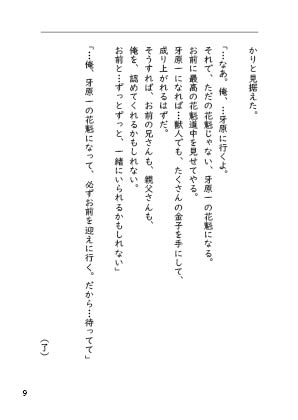 かりと見据えた。
「…なあ。俺、…牙原に行くよ。
それで、ただの花魁じゃない、牙原一の花魁になる。
お前に最高の花魁道中を見せてやる。
牙原一になれば…獣人でも、たくさんの金子を手にして、
成り上がれるはずだ。
そうすれば、お前の兄さんも、親父さんも、
俺を、認めてくれるかもしれない。
お前と…ずっとずっと、一緒にいられるかもしれない」
「…俺、牙原一の花魁になって、必ずお前を迎えに行く。だから…待ってて」
(了)
9